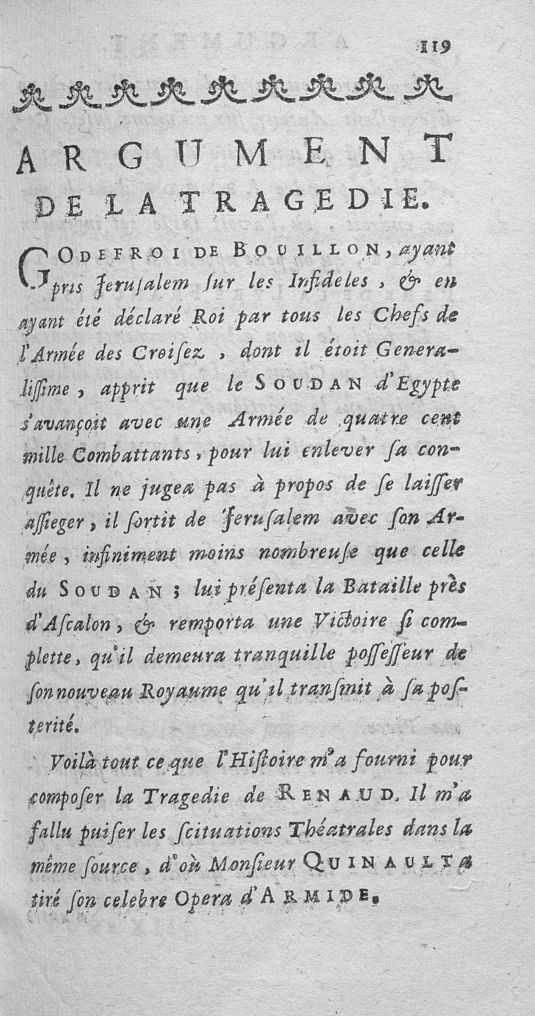 119
ARGUMENT
DE LA TRAGEDIE.
GODEFROI DE BOUILLON, ayant
pris Jeruſalem ſur les Infideles, & en
ayant été déclaré Roi par tous les Chefs de
l'Armée des Croiſez, dont il étoit Genera-
liſſime, apprit que le SOUDAN d'Egypte
s'avançoit avec une Armée de quatre cent
mille Combattants, pour lui enlever ſa con-
quête. Il ne jugea pas à propos de ſe laiſſer
aſſieger, il ſortit de Jeruſalem avec ſon Ar-
mée, infiniment moins nombreuſe que celle
du SOUDAN; lui préſenta la Bataille près
d'Aſcalon, & remporta une Victoire ſi com-
plette, qu'il demeura tranquille poſſeſſeur de
ſon nouveau Royaume qu'il tranſmit à ſa poſ-
terité.
Voilà tout ce que l'Hiſtoire m'a fourni pour
compoſer la Tragedie de RENAUD. Il m'a
fallu puiſer les ſcituations Théatrales dans la
même ſource, d'où Monſieur QUINAULT a
tiré ſon celebre Opera d'ARMIDE.